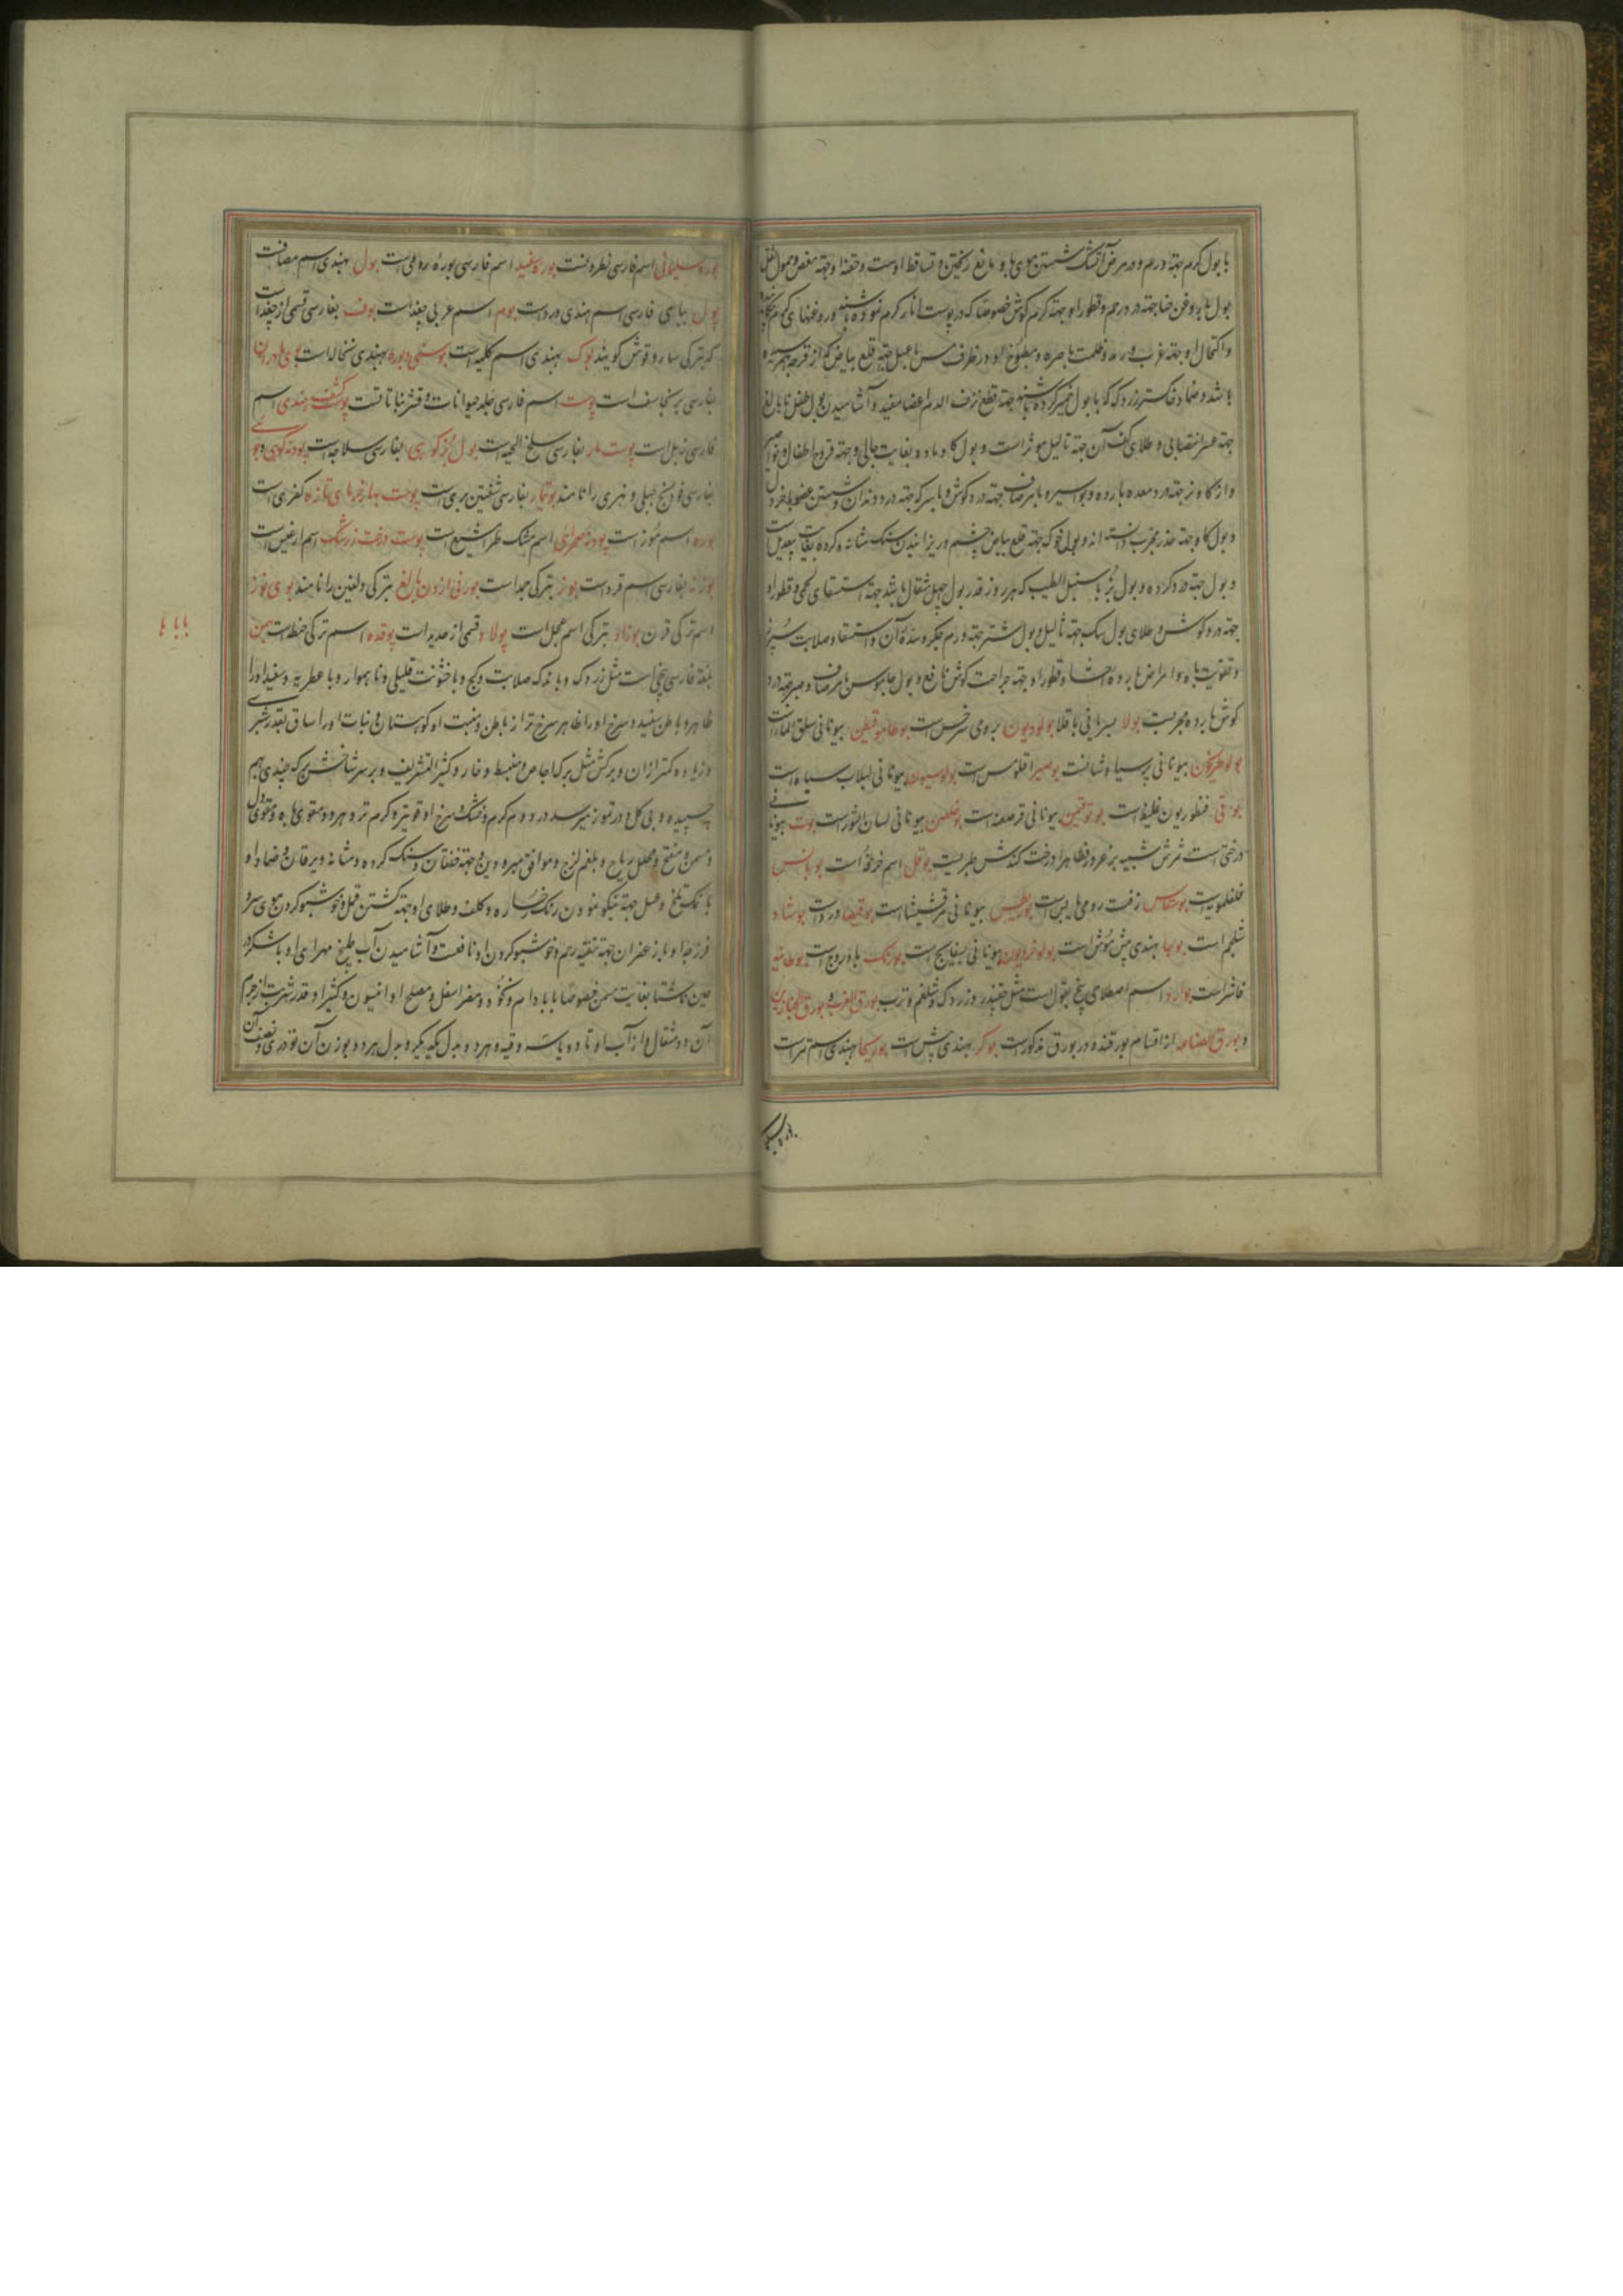 با بول گرم جهة درم و در مرض آتشک شستن موی ها و مانع ریختن و تساقط اوست و حقنه او جهة مغص و حمول ثفل
بول با روغن حنا جهة درد رحم و قطور او جهة کرم گوش خصوصا که در پوست انار گرم نموده باشند و روغنهای گرم
و اکتحال او جهة غرب و رمد و ظلمت باصره و مطبوخ او در ظرف مس با عسل جهة قلع بیاض که از قرحه بهم رسیده
باشد و ضماد خاکستر زردک که با بول خمیر کرده باشند جهة قطع نزف الدم اعضا مفید و آشامیدن بول طفل نابالغ
جهة عسر و طلای کف آن جهة ثالیل مؤثر است و بول گاو ماده بغایت جالی و جهة قروح اطفال
و از گاو نر جهة درد معده بارده و بواسیر و با مر صاف جهة درد گوش و با سرکه جهة درد دندان و شستن عضو
و بول گاو جهة خدر مجرب دانسته اند و بول خوک جهة قلع بیاض چشم و ریزانیدن سنگ مثانه و گرده بغایت بیعدیل است
و بول جهة درد گرده و بول بز با سنبل الطیب که هر روز قدر بول چهل مثقال باشد جهة استسقای لحمی و قطور او
جهة درد گوش و طلای بول سگ جهة ثالیل و بول شتر جهة ورم جگر و سدهٔ آن و استسقا و صلابت سپرز
و تقویت باه و امراض بارده احشا و قطور او جهة جراحت گوش نافع و بول جاموس با مر صاف و صبر جهة درد
گوش بارده مجربست بولا بسریانی باقلا بولودیون برومی سرخس است بوطاموقیطن بیونانی سلق الماء است
بولوطریخون بیونانی پرسیاوشانست بوصیرا قلومس است بولوسیون بیونانی لبلاب سیاه است
بوقی قنطوریون غلیظ است بوتوقنین بیونانی قرصعنه است بوغلصن بیونانی لسان الثور است بوت بیونانی
درختی است ثمرش شبیه بزعرور و ظاهرا درخت کندش طبریست بوقل اسم خرفه است بوبانس
غلغلمویست بوسقاس زفت رومی یابس است بوریطس بیونانی مرقشیشا است بوقیصا دردار است بوشاد
شلجم است بوبها بهندی پش موش است بولوخردیون بیونانی بسفایج است بورنک بادروج است بوطانیه
فاشر است بوارد اسم اصطلاحی پنج بقول است مثل چقندر و زردک و شلغم و ترب بورق الغرب و بورق الخبازین
و بورق الصناعه از اقسام بورقند و در بورق مذکور است بوکر بهندی پش است بوریحا بهندی اسم مر است
بوره سلیمانی
بوره سلیمانی اسم فارسی نطرونست بوره سفید اسم فارسی بوره رومی است بول بهندی اسم مصافت
پول بیابسی فارسی اسم هندی درد است بوم اسم عربی جغد است بوف بفارسی قسمی از جغد است
که بترکی ساروقوش گویند بوک بهندی اسم کلیه است بوسنی و بوره بهندی نخاله است بوی مادران
بفارسی برنجاسف است پوست اسم فارسی جلد حیوانات و قشر نباتاتست پوست کشف هندی اسم
فارسی زبل است پوست مار بفارسی سلخ الحیه است بول بز کوهی بفارسی سلاجه است پودنه کوهی و جوی
بفارسی فودنج جبلی و نهری را نامند بوتیمار بفارسی شفنین بری است پوست بهار خرمای تازه کفری است
بوده اسم موز است پودنه صحرائی اسم مشک طرامشیع است پوست درخت زرشک اسم ارغیس است
بوزنه بفارسی اسم قرد است بوز بترکی جمد است بورنی ازدن بالغ بترکی دلفین را نامند بوی نوز
اسم ترکی قرن بوزاو بترکی اسم عجل است پولاد قسمی از حدید است بوقده اسم ترکی حنطه است بهمن
بابا با
بلغة فارسی بیخی است مثل زردک و با اندک صلابت و کج و با خشونت قلیلی و ناهموار و با عطریه و سفید او را
ظاهر و باطن سفید و سرخ او را ظاهر سرخ تر از باطن و منبت او کوهستان و نبات او را ساق بقدر شبری
و زیاده و کمتر از آن و برگش مثل برگ اجاص و منبسط و خار و کثیر التشریف و بر سر شاخش برگ چندی بهم
چسپیده و بی گل و در تموز میرسد در دوم گرم و خشک و سرخ او قویتر و گرم تر و هر دو مقوی باه و مقوی دل
و مسمن و مفتح و محلل ریاح و بلغم لزج و موافق مبرودین و جهة خفقان و سنگ گرده و مثانه و یرقان و ضماد او
با نمک تلخ و عسل جهة نیکو نمودن رنگ رخساره و کلف و طلای او جهة کشتن قمل و خوشبو کردن موی سر و
فرزجه او با زعفران جهة تنقیه رحم و خوشبو کردن او نافعست و آشامیدن آب طبیخ مهرای او با شکر در
حین ناشتا بغایت مسمن خصوصا با بادام و نخود و مضر اسفل و مصلح او انیسون و کتیرا و قدر شربت از جرم
آن دو مثقال و از آب او تا دو یا سه وقیه و هر دو بدل یکدیگر و بدل هر دو بوزن آن تودری و نصف آن